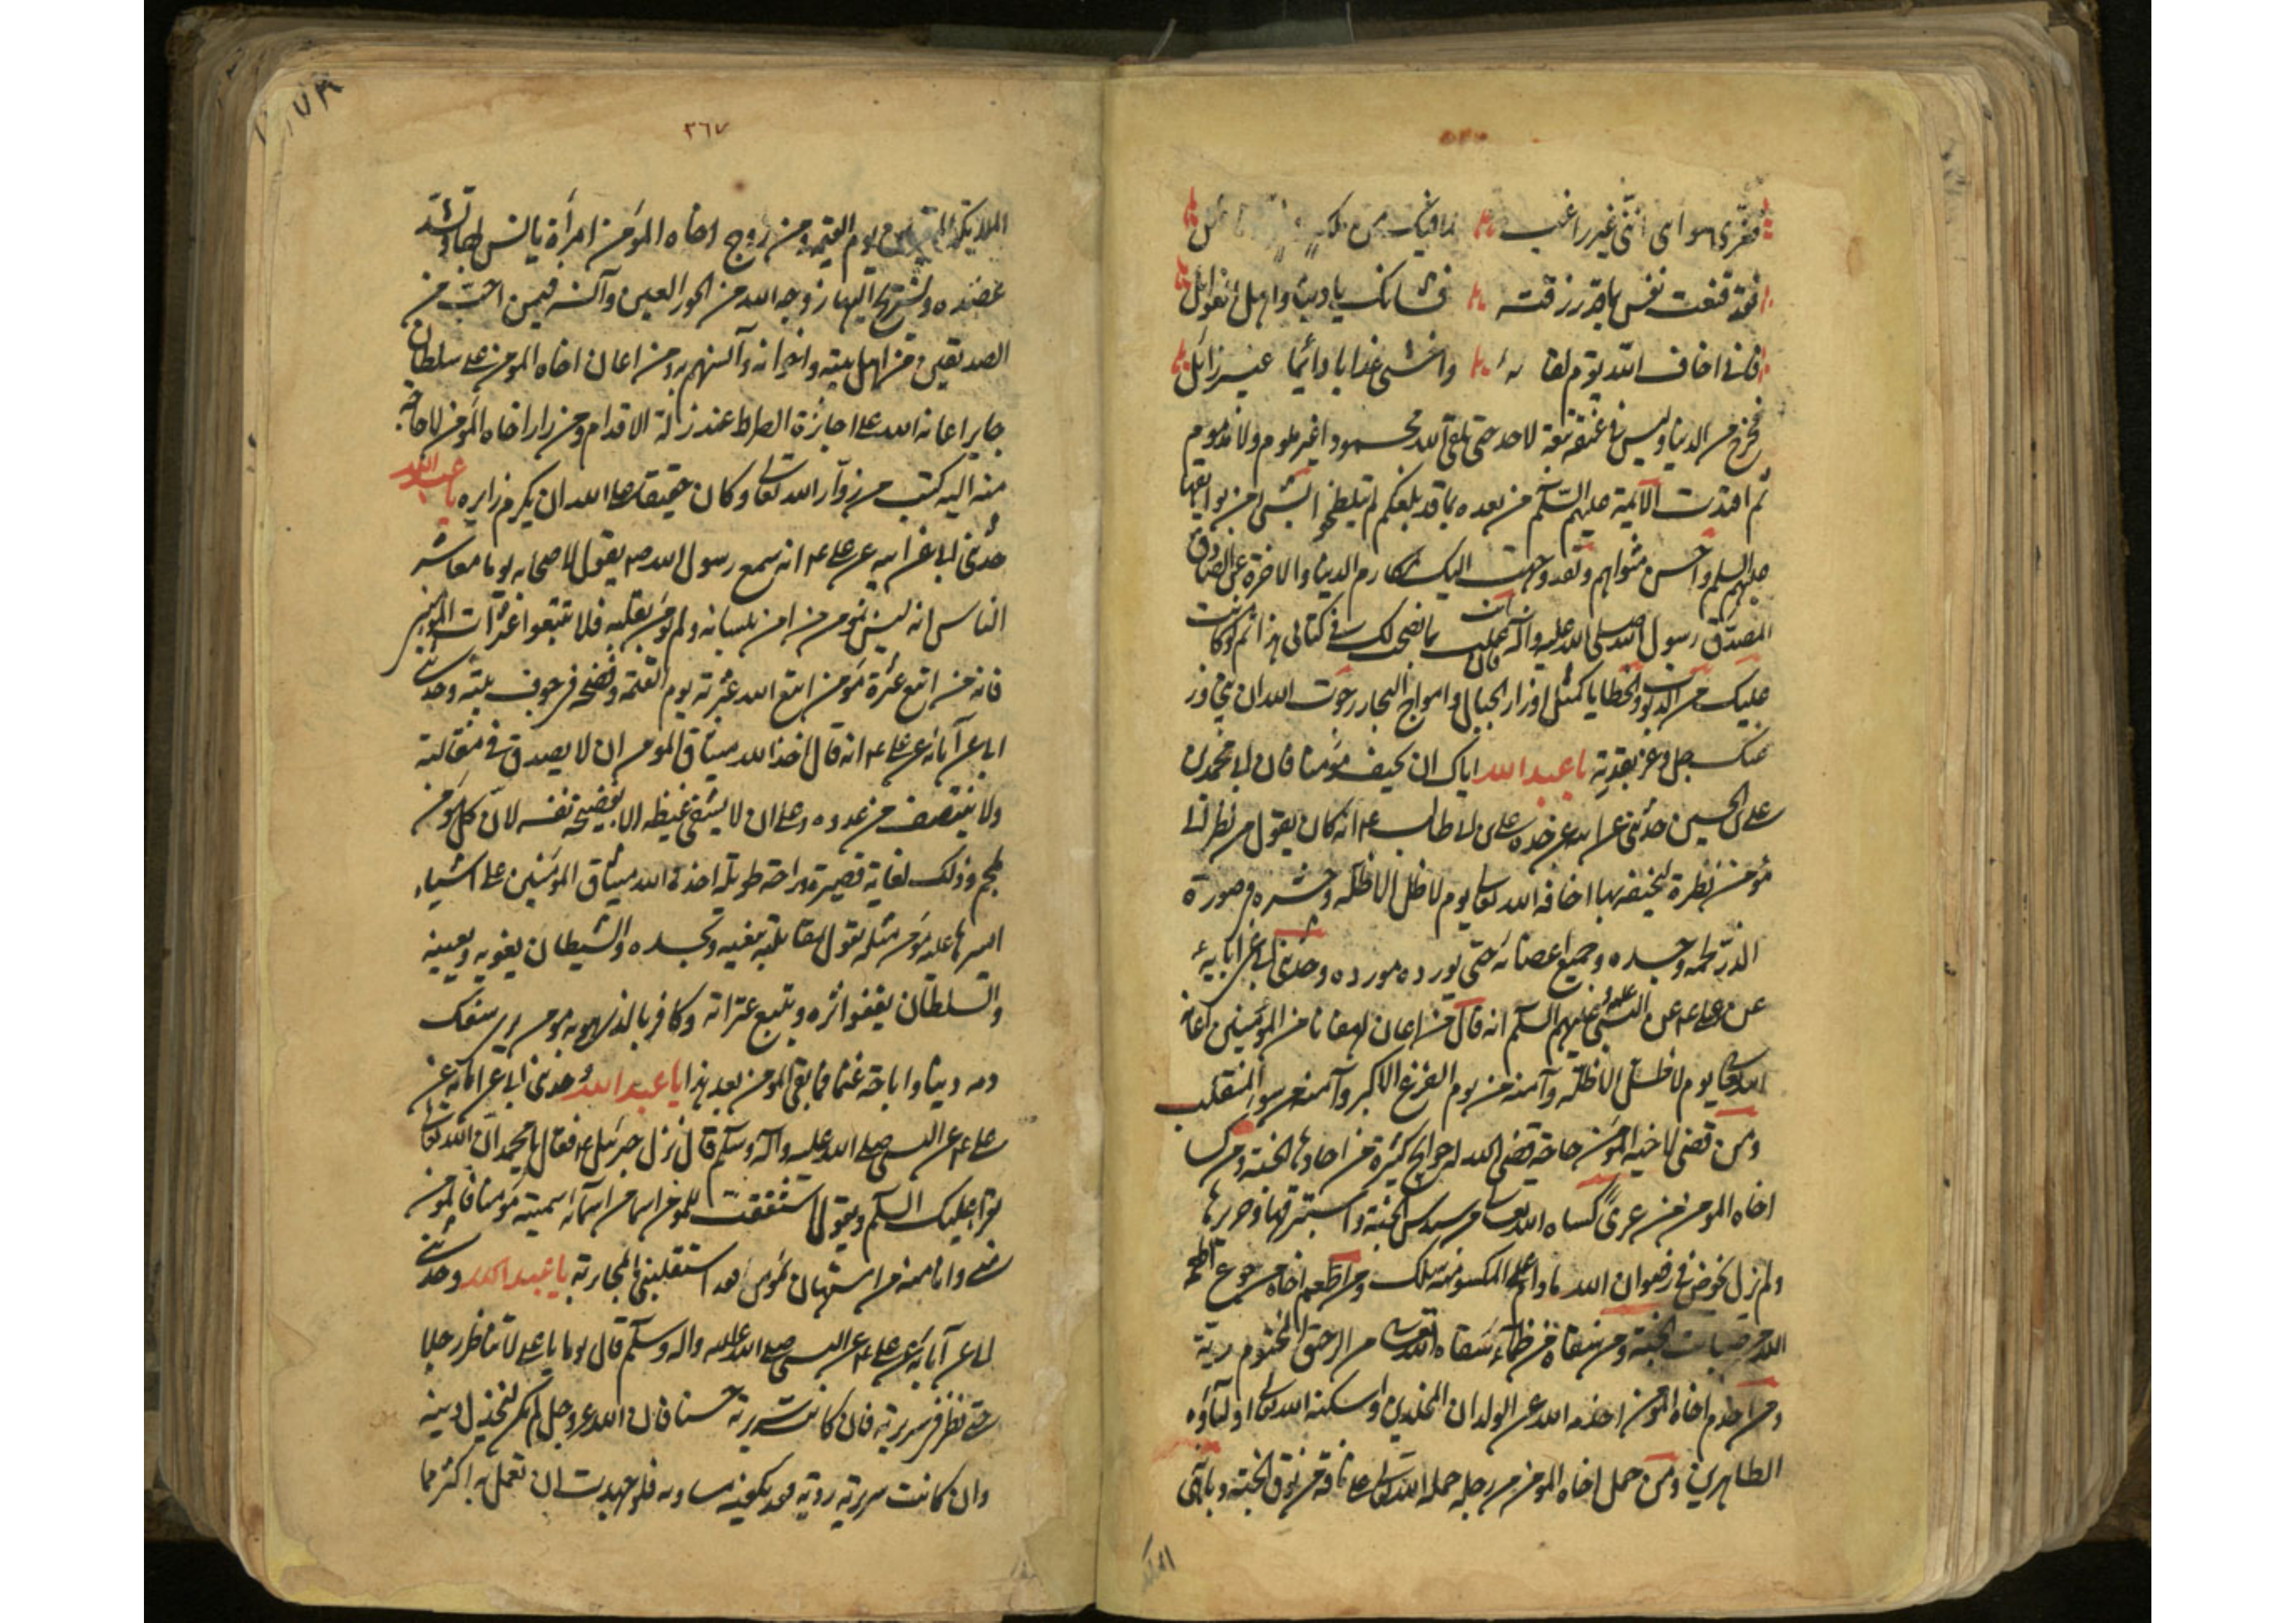 فغرّي سواي انّني غير راغب لما فيك من
فقد قنعت نفسي بما قد رزقته فشانك يا دنيا واهل الغوائل
فاني اخاف الله يوم لقائه واخشى عذابا دائما غير زائل
فخرج من الدنيا وليس في عنقه تبعة لاحد حتى لقي الله محمودا غير ملوم ولا مذموم
ثم اقتدت به الائمة عليهم السلم من بعده بما قد بلغكم لم يتلطخوا بشئ من بوايقها
عليهم السلم واحسن مثواهم وقد وجهت اليك بمكارم الدنيا والاخرة عن الصادق
المصدق رسول الله صلى الله عليه واله فان انت عملت بما نصحت لك في كتابي هذا ثم كانت
عليك من الذنوب والخطايا كمثل اوزار الجبال وامواج البحار رجوت الله ان يتجاوز
عنك جل وعز بقدرته يا عبد الله اياك ان تخيف مؤمنا فان ابي محمد بن
علي بن الحسين حدثني عن ابيه عن جده علي بن ابي طالب ع انه كان يقول من نظر الى
مؤمن نظرة ليخيفه بها اخافه الله تعالى يوم لا ظل الا ظله وحشره في صورة
الذرّ لحمه وجسده وجميع اعضائه حتى يورده مورده وحدثني ابي عن ابائه
عن علي ع عن النبي عليهم السلم انه قال من اعان لهفانا من المؤمنين اغاثه
الله تعالى يوم لا ظل الا ظله وآمنه من يوم الفزع الاكبر وآمنه من سوء المنقلب
ومن قضى لاخيه المؤمن حاجة قضى الله له حوائج كثيرة من احداها الجنة ومن كسا
اخاه المؤمن من عرى كساه الله تعالى من سندس الجنة واستبرقها وحريرها
ولم يزل يخوض في رضوان الله ما دام على المكسو منه سلك ومن اطعم اخاه من جوع اطعمه
الله من طيبات الجنة ومن سقاه من ظمأ سقاه الله تعالى من الرحيق المختوم ريّه
ومن اخدم اخاه المؤمن اخدمه الله من الولدان المخلدين واسكنه الله تعالى اوليآؤه
الطاهرين ومن حمل اخاه المؤمن من رجله حمله الله تعالى على ناقة من نوق الجنة وباهى
الملا
٣٦٧
الملائكة المقربين يوم القيمة ومن زوج اخاه المؤمن امرأة يانس بها وتشد
عضده ويستريح اليها زوجه الله من الحور العين وآنسه فيمن احب من
الصديقين من اهل بيته واخوانه وآنسهم به ومن اعان اخاه المؤمن على سلطان
جاير اعانه الله على اجازة الصراط عند زلة الاقدام ومن زار اخاه المؤمن لا حاجة
منه اليه كتب من زوار الله تعالى وكان حقيقا على الله ان يكرم زايره يا عبد الله
حدثني ابي عن ابيه عن علي ع انه سمع رسول الله ص يقول لاصحابه يوما معاشر
الناس انه ليس بمؤمن من امن بلسانه ولم يؤمن بقلبه فلا تتبعوا عثرات المؤمنين
فانه من اتبع عثرة مؤمن اتبع الله عثرته يوم القيمة وفضحه في جوف بيته وحدثني
ابي عن آبائه عن علي ع انه قال اخذ الله ميثاق المؤمن ان لا يصدق في مقالته
ولا ينتصف من عدوه وعلى ان لا يشفي غيظه الا بفضيحة نفسه لان كل مؤمن
ملجم وذلك لغاية قصيرة وراحة طويلة اخذ الله ميثاق المؤمنين على اشياء
ايسرها عليه مؤمن مثله يقول بمقالته يبغيه ويحسده والشيطان يغويه ويعينه
والسلطان يقفو اثره ويتبع عثراته وكافر بالذي هو به مؤمن يرى سفك
دمه دينا واباحة غنما فما بقي المؤمن بعد هذا يا عبد الله وحدثني ابي عن ابائه عن
علي ع عن النبي صلى الله عليه وآله وسلم قال نزل جبرئيل ع فقال يا محمد ان الله تعالى
يقرأ عليك السلم ويقول اشتققت للمؤمن اسما من اسمائي سميته مؤمنا فالمؤمن
مني وانا منه من استهان بمؤمن فقد استقبلني بالمحاربة يا عبد الله وحدثني
ابي عن آبائه عن علي ع عن النبي صلى الله عليه واله وسلم قال يوما يا علي لا تناظر رجلا
حتى تنظر في سريرته فان كانت سريرته حسنا فان الله عز وجل لم يكن ليخذل وليه
وان كانت سريرته ردية فقد يكفيه مساويه فلو جهدت ان تعمل به اكثر مما